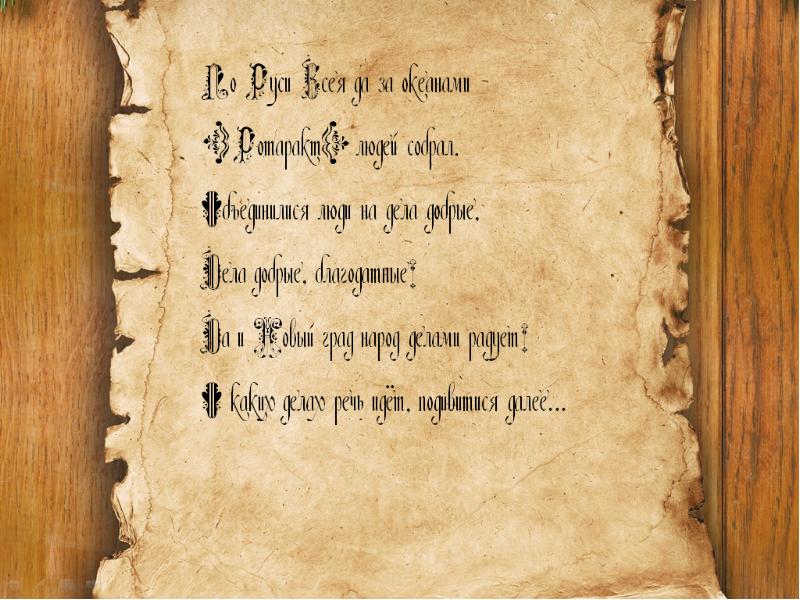 По Руси Всея да за океанами
«Ротаракт» людей собрал.
Объединилися люди на дела добрые,
Дела добрые, благодатные!
Да и Новый град народ делами радует!
О какихо делахо речь идёт, подивитися далее...